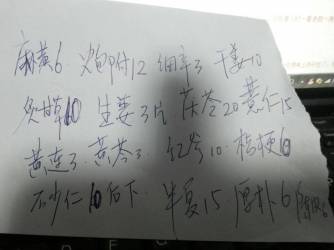 麻黄6 炮附片12 细辛3 干姜10
炙甘草10 生姜3片 茯苓20 薏仁15
黄连3 黄芩3 红参10 桔梗6
砂仁10后下 半夏15 厚朴6